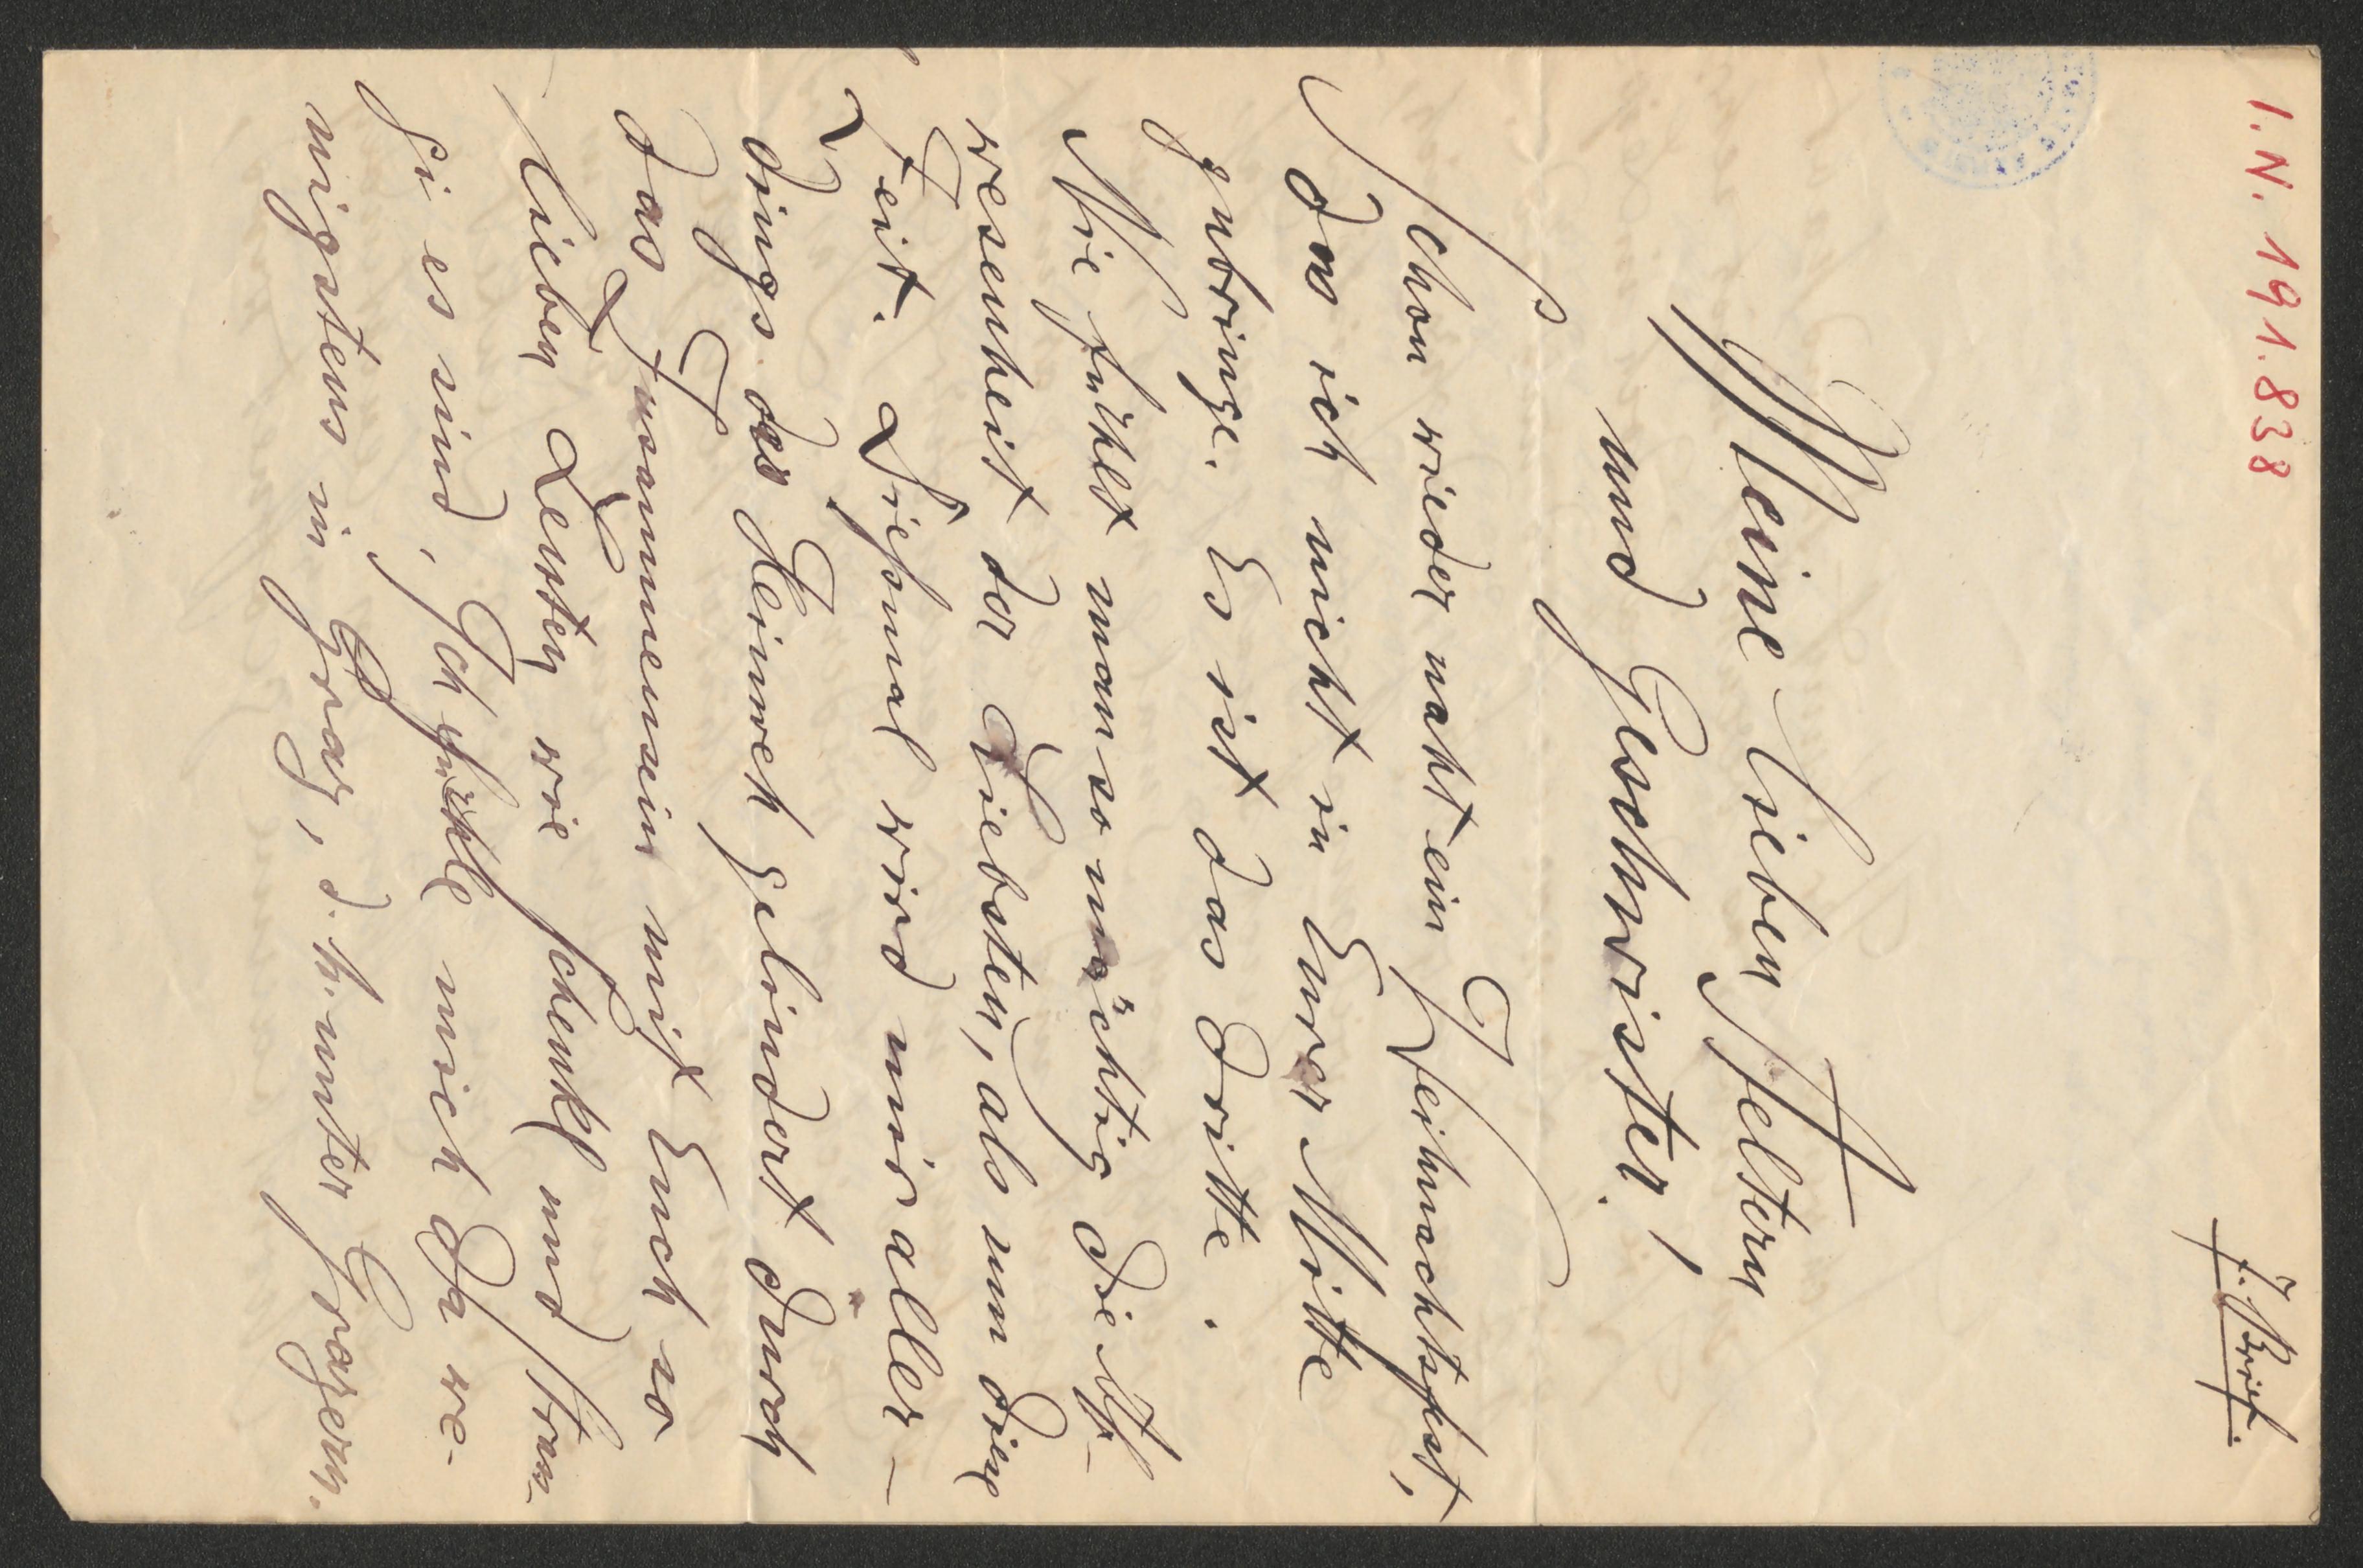 I. N. 191.838
7. Brief.
Meine lieben Aeltern
und Geschwister!
Schon wieder naht ein Weihnachtsfest,
das ich nicht in Eurer Mitte
zubringe. Es ist das dritte.
Nie fühlt man so mächtig die Ab-
wesenheit der Liebsten, als um diese
Zeit. Dießmal wird mir aller-
dings das Heimweh gelindert durch
das Zusammensein mit Euch so
lieben Leuten wie Schenkl und
Sie es sind, Ich fühle mich da we-
nigstens in Graz, d. h. unter Grazern.